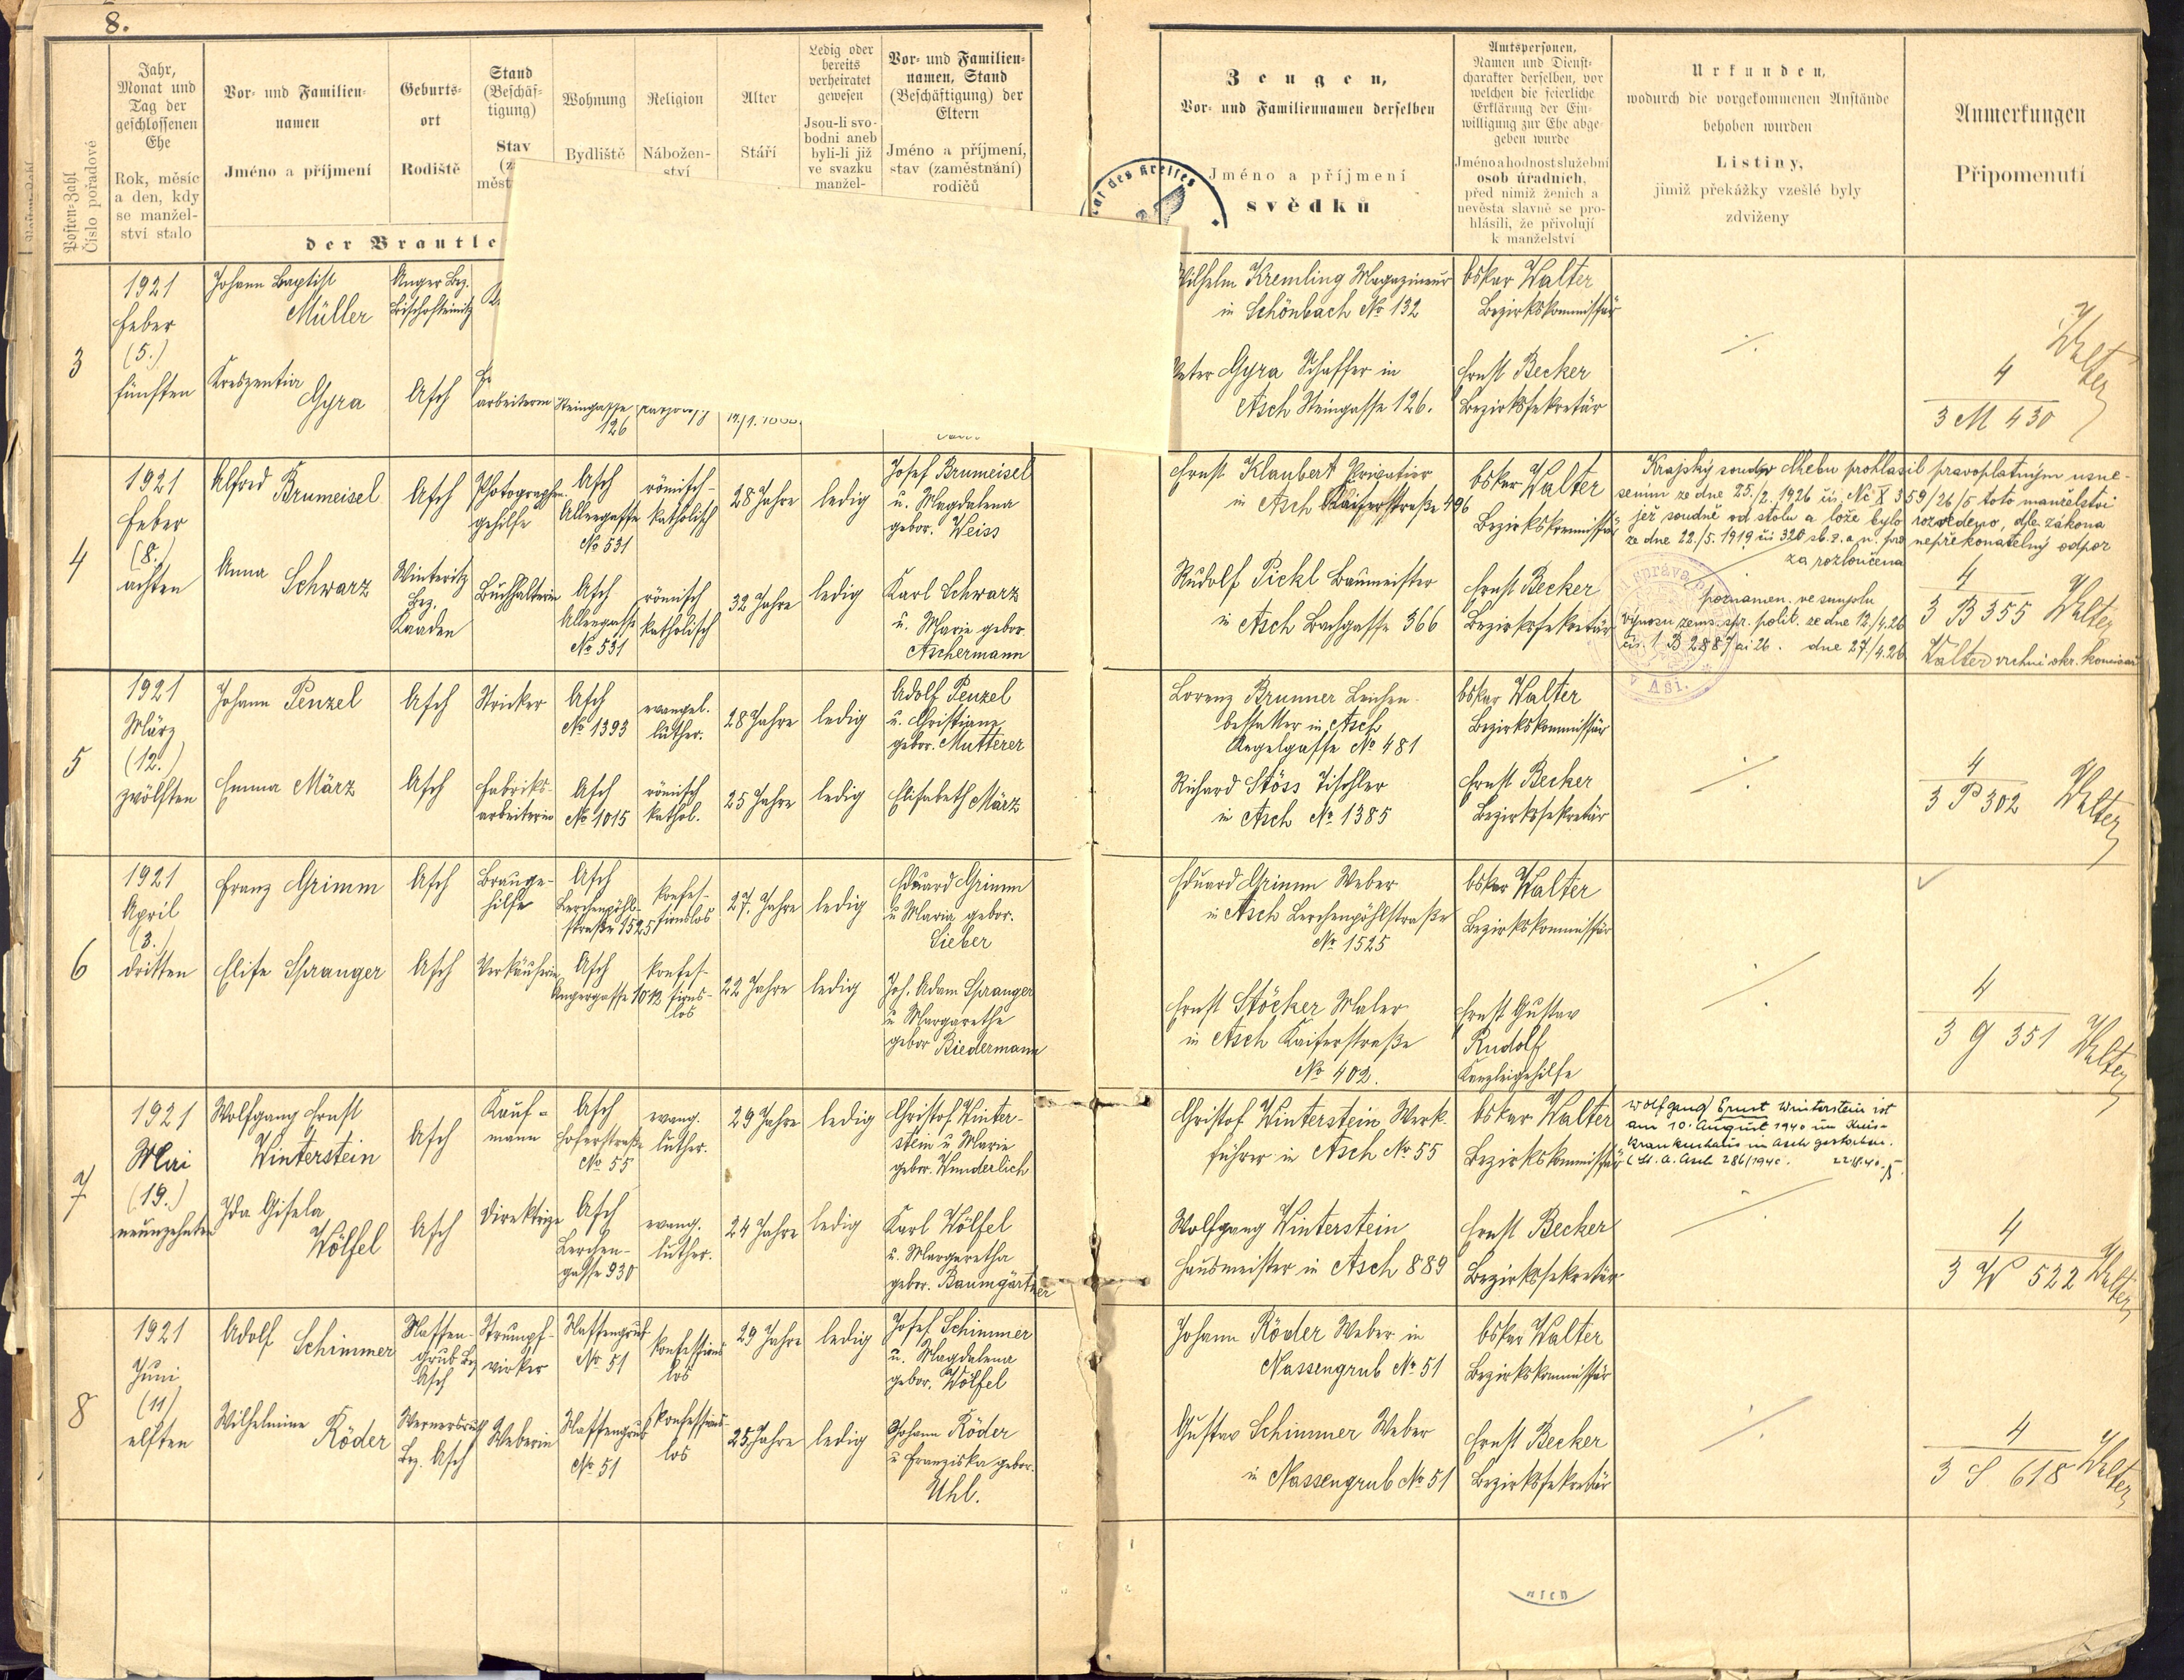 8.
Posten-Zahl
Číslo pořadové
Jahr,
Monat und
Tag der
geschlossenen
Ehe
Rok, měsíc
a den, kdy
se manžel-
ství stalo
Vor- und Familien-
namen
Jméno a příjmení
Geburts-
ort
Rodiště
Stand
(Beschäf-
tigung)
Stav
(z
měst
Wohnung
Bydliště
Religion
Nábožen-
ství
Alter
Stáří
Ledig oder
bereits
verheiratet
gewesen
Jsou-li svo-
bodni aneb
byli-li již
ve svazku
manžel-
Vor- und Familien-
namen, Stand
(Beschäftigung) der
Eltern
Jméno a příjmení,
stav (zaměstnání)
rodičů
der Brautle
Zeugen,
Vor- und Familiennamen derselben
Jméno a příjmení
svědků
Amtspersonen,
Namen und Dienst-
charakter derselben, vor
welchen die feierliche
Erklärung der Ein-
willigung zur Ehe abge-
geben wurde
Jméno a hodnost služební
osob úradních,
před nimiž ženich a
nevěsta slavně se pro-
hlásili, že přivolují
k manželství
Urkunden,
wodurch die vorgekommenen Anstände
behoben wurden
Listiny,
jimiž překážky vzešlé byly
zdviženy
Anmerkungen
Připomenutí
des Kreises
3
1921
Feber
(5.)
fünften
Johann Baptist
Müller
Anger Bez.
Bischofteinitz
Kreszentia
Gyra
Asch
arbeiterin
Steingasse
126
Wilhelm Kremling Magazineur
in Schönbach No 132
Peter Gyra Schaffer in
Asch Steingasse 126.
Oskar Walter
Bezirkskommissär
Ernst Becker
Bezirkssekretär
4
3 M 430
Walter
4
1921
Feber
(8.)
achten
Alfred Brumeisel
Asch
Photographen-
gehilfe
Asch
Allengasse
No 531
römisch-
katholisch
28 Jahre
ledig
Josef Brumeisel
u. Magdalena
gebor. Weiss
Anna Schwarz
Winteritz
Bez.
Kaaden
Buchhalterin
Asch
Allengasse
No 531
römisch
katholisch
32 Jahre
ledig
Karl Schwarz
u. Marie gebor.
Aschermann
Ernst Klaubert Privatier
in Asch Kaiserstraße 496
Rudolf Pickl Baumeister
in Asch Bachgasse 366
Oskar Walter
Bezirkskommissär
Ernst Becker
Bezirkssekretär
Krajský soud v Chebu prohlásil pravoplatným usne-
sením ze dne 25./2. 1926 čís. Nc X 359/26/5 toto manželství
jež soudně od stolu a lože bylo rozvedeno, dle zákona
ze dne 22./5. 1919 čís 320 sb. z. a n. pro nepřekonatelný odpor
za rozloučena
poznamen. ve smyslu
výnosu zems. spr. polit. ze dne 12./4.26
dne 27/4.26
v Aši.
4
3 B 355 Walter
Walter vrchní okr. komisař
5
1921
März
(12.)
zwölften
Johann Penzel
Asch
Stricker
Asch
No 1393
evangel.
luther.
28 Jahre
ledig
Adolf Penzel
u. Christiane
gebor. Mutterer
Emma März
Asch
Fabriks-
arbeiterin
Asch
No 1015
römisch
kathol.
25 Jahre
ledig
Elisabeth März
Lorenz Brunner Leichen-
bestatter in Asch
Angelgasse No 481
Richard Stöss Tischler
in Asch No 1385
Oskar Walter
Bezirkskommissär
Ernst Becker
Bezirkssekretär
4
3 P 302 Walter
6
1921
April
(3.)
dritten
Franz Grimm
Asch
Brauge-
hilfe
Asch
Lerchenpöhl-
straße 1525
konfes-
sionslos
27. Jahre
ledig
Eduard Grimm
u Maria gebor.
Sieber
Elise Spranger
Asch
Verkäuferin
Asch
Angergasse 1012
konfes-
sions-
los
22 Jahre
ledig
Joh. Adam Spranger
u Margarethe
gebor Biedermann
Eduard Grimm Weber
in Asch Lerchenpöhlstraße
No 1525
Ernst Stöcker Maler
in Asch Kaiserstraße
No 402.
Oskar Walter
Bezirkskommissär
Ernst Gustav
Rudolf
Kanzleigehilfe
4
3 G 351 Walter
7
1921
Mai
(19.)
neunzehnten
Wolfgang Ernst
Winterstein
Asch
Kauf-
mann
Asch
Hoferstraße
No 55
evang.
luther.
29 Jahre
ledig
Christof Winter-
stein u Marie
gebor. Wunderlich
Ida Gisela
Wölfel
Asch
Direktrize
Asch
Lerchen-
gasse 930
evang.
luther.
24 Jahre
ledig
Karl Wölfel
u. Margaretha
gebor. Baumgärtner
Christof Winterstein Werk-
führer in Asch No 55
Wolfgang Winterstein
Hausmeister in Asch 889
Oskar Walter
Bezirkskommissär
Ernst Becker
Bezirkssekretär
Wolfgang Ernst Winterstein ist
am 10. August 1940 im Kreis-
krankenhaus in Asch gestorben.
(St. A. Asch 286/1940. 22.8.40.
4
3 W 522 Walter
8
1921
Juni
(11)
elften
Adolf Schimmer
Nassen-
grub Bez
Asch
Strumpf-
wirker
Nassengrub
No 51
konfessions
los
29 Jahre
ledig
Josef Schimmer
u. Magdalena
gebor. Wölfel
Wilhelmine Röder
Wernersreuth
Bez. Asch
Weberin
Nassengrub
No 51
konfessions-
los
25 Jahre
ledig
Johann Röder
u Franziska gebor.
Uhl.
Johann Röder Weber in
Nassengrub No 51
Gustav Schimmer Weber
in Nassengrub No 51
Oskar Walter
Bezirkskommissär
Ernst Becker
Bezirkssekretär
4
3 S 618 Walter